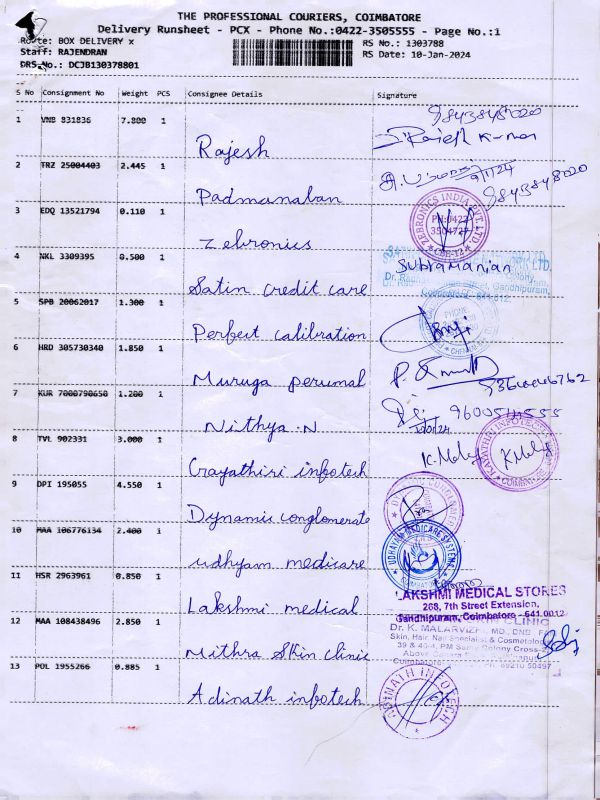 THE PROFESSIONAL COURIERS, COIMBATORE
Delivery Runsheet - PCX - Phone No.:0422-3505555 - Page No.:1
Route: BOX DELIVERY x
RS No.: 1303788
Staff: RAJENDRAN
RS Date: 10-Jan-2024
DRS No.: DCJB130378801
S No Consignment No Weight PCS Consignee Details Signature
9843848020
1 VNB 831836 7.800 1
Rajesh Kumar
Rajesh
2 TRZ 25004403 2.445 1
9843848020
Padmanaban
3 EDQ 13521794 0.110 1
ZEBRONICS INDIA PVT. LTD.
PH:0422
3504727
CBE-12
Zebronics
4 NKL 3309395 0.500 1
Subramanian
Gandhipuram,
Satin credit care
5 SPB 20062017 1.300 1
Perfect calibration
6 HRD 305730340 1.850 1
Muruga perumal
7 KUR 7000790650 1.200 1
9600514555
Nithya.N
8 TVL 902331 3.000 1
Gayathiri infotech
9 DPI 195055 4.550 1
Dynamic conglomerate
10 MAA 106776134 2.400 1
UDHAYAM MEDICARE SYSTEMS
udhyam medicare
11 HSR 2963961 0.850 1
LAKSHMI MEDICAL STORES
268, 7th Street Extension,
Gandhipuram, Coimbatore - 641 0012
Lakshmi medical
12 MAA 108438496 2.850 1
CLINIC
Dr. K. MALARVIZHI, MD., DNB
Skin, Hair, Nail Specialist & Cosmetology
Mithra Skin clinic
13 POL 1955266 0.885 1
ADINATH INFOTECH
Adinath infotech